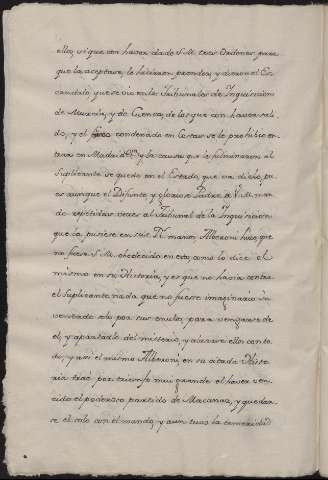 ellos, si que con haver dado S.M. tres Ordenes, para
que la aceptase, le hicieron prender, y dieron el Es-
candalo, que se vio en los Tribunales de Inquisicion
de Murcia, y de Cuenca, de los que con haver sali-
do, y el condenado en Costas se le prohibio en-
trar en Madrid &ª. y la causa que le fulminaron al
Suplicante se quedo en el Estado, que va dicho, pu-
es aunque el Difunto, y glorioso Padre de V.M. man-
do repetidas veces al Tribunal de la Inquisicion
que la pusiese en sus Rs. manos, Alberoni hizo, que
no fuera S.M. obedecido en esto, como lo dice el
mismo en su Historia, y es que no havia contra
el Suplicante nada que no fuesse imaginario in-
ventado solo por sus emulos, para vengarse de
el, y apartarle del misterio, y alzarse ellos con to-
do, y assi el mismo Alberoni, en su citada Histo-
ria trae por triunfo muy grande el haver ven-
cido el poderoso partido de Macanaz, y quedar-
se el solo con el mando, y aun tuvo la temeridad